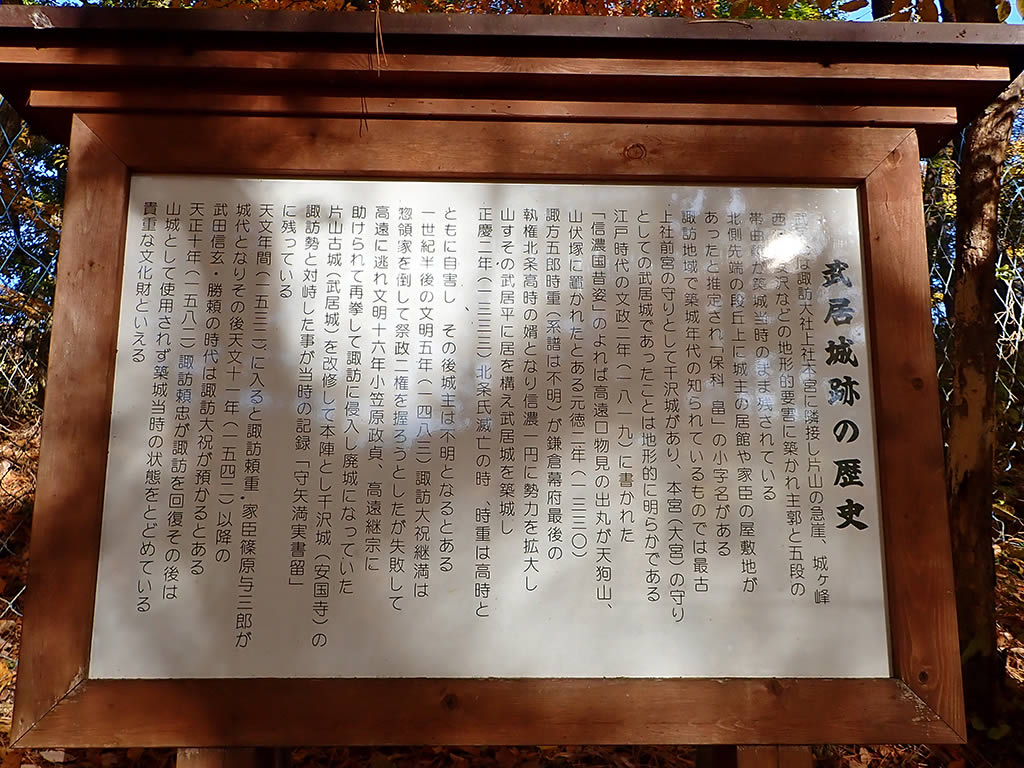 武居城跡の歴史
は諏訪大社上社本宮に隣接し片山の急崖、城ヶ峰
沢などの地形的要害に築かれ主郭と五段の
帯曲 が築城当時のまま残されている
北側先端の段丘上に城主の居館や家臣の屋敷地が
あったと推定され「保科 畠」の小字名がある
諏訪地域で築城年代の知られているものでは最古
上社前宮の守りとして干沢城があり、本宮(大宮)の守り
としての武居城であったことは地形的に明らかである
江戸時代の文政二年(一八一九)に書かれた
「信濃国昔姿」のよれば高遠口物見の出丸が天狗山、
山伏塚に置かれたとある元徳二年(一三三〇)
諏方五郎時重(系譜は不明)が鎌倉幕府最後の
執権北条高時の婿となり信濃一円に勢力を拡大し
山すその武居平に居を構え武居城を築城し
正慶二年(一三三三)北条氏滅亡の時、時重は高時と
ともに自害し、その後城主は不明となるとある
一世紀半後の文明五年(一四八三)諏訪大祝継満は
惣領家を倒して祭政二権を握ろうとしたが失敗して
高遠に逃れ文明十六年小笠原政貞、高遠継宗に
助けられて再挙して諏訪に侵入し廃城になっていた
片山古城(武居城)を改修して本陣とし干沢城(安国寺)の
諏訪勢と対峙した事が当時の記録「守矢満実書留」
に残っている
天文年間(一五三二)に入ると諏訪頼重・家臣篠原与三郎が
城代となりその後天文十一年(一五四二)以降の
武田信玄・勝頼の時代は諏訪大祝が預かるとある
天正十年(一五八二)諏訪頼忠が諏訪を回復その後は
山城として使用されず築城当時の状態をとどめている
貴重な文化財といえる